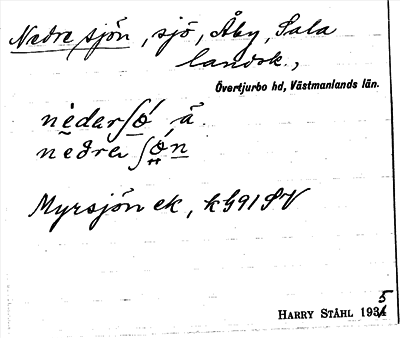 Nedre sjön, sjö, Åby, Sala
landsk.,
Övertjurbo hd, Västmanlands län.
nèdarʃø̀ ä.
nedra ʃø̀n
Myrsjön ek, kG91SV
HARRY STÅHL 1935